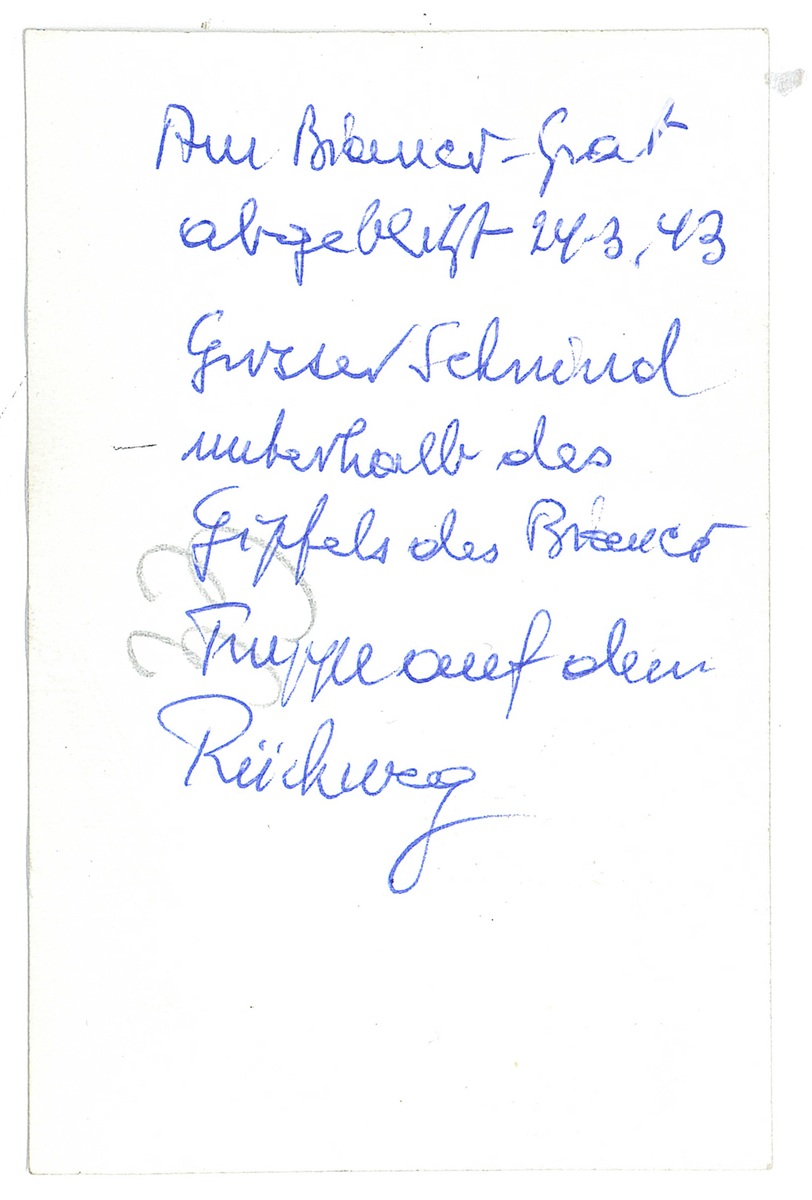 Am Bianco-Grat
abgeblitzt 24.3.43
Grosser Schrund
unterhalb des
Gipfels des Bianco
Truppe auf dem
Rückweg